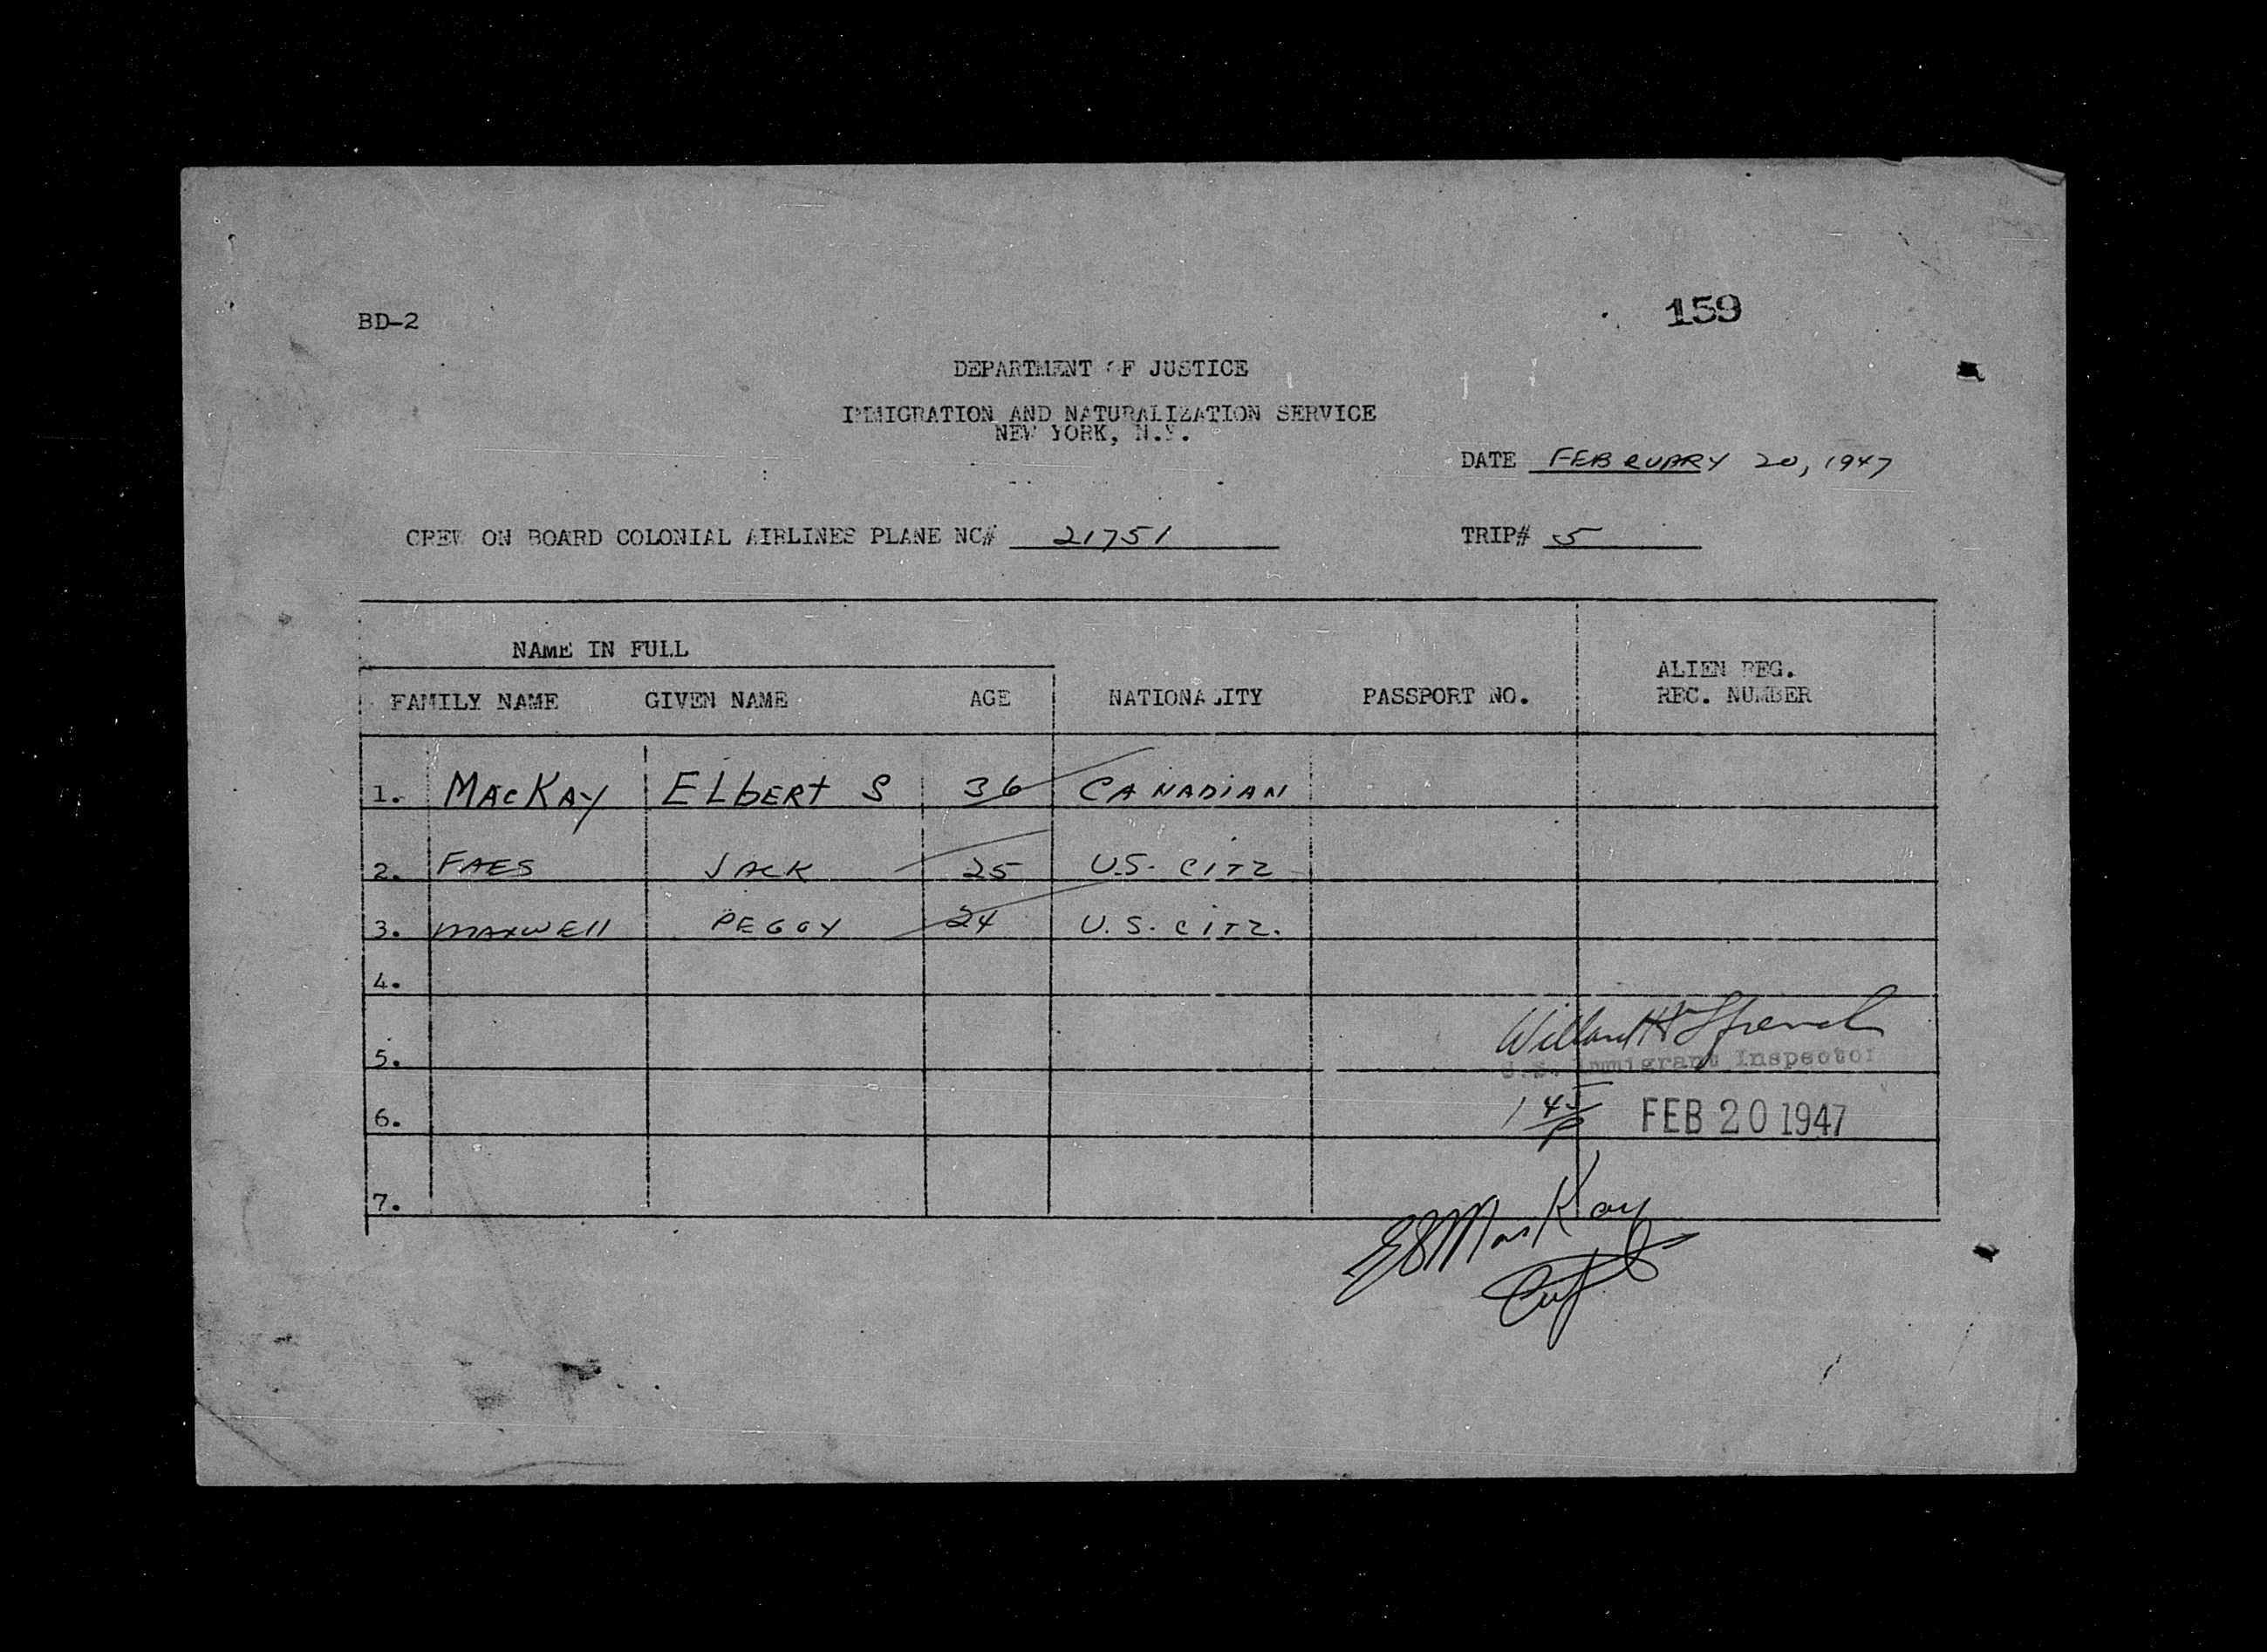 159
BD-2
DEPARTMENT OF JUSTICE
IMMIGRATION AND NATURALIZATION SERVICE
NEW YORK, N.Y.
DATE FEBRUARY 20, 1947
CREW ON BOARD COLONIAL AIRLINES PLANE NC# 21751 TRIP# 5
NAME IN FULL
ALIEN REG.
FAMILY NAME GIVEN NAME AGE NATIONALITY PASSPORT NO. REC. NUMBER
1. MACKAY ELbERt S 36 CANADIAN
2. FAES JACK 25 U.S. CITZ
3. MAXWEll PEGGY 24 U.S. CITZ.
4.
Willard H
5. U.S. Immigrant Inspector
6. 1 45 P FEB 20 1947
7.
ES MacKay